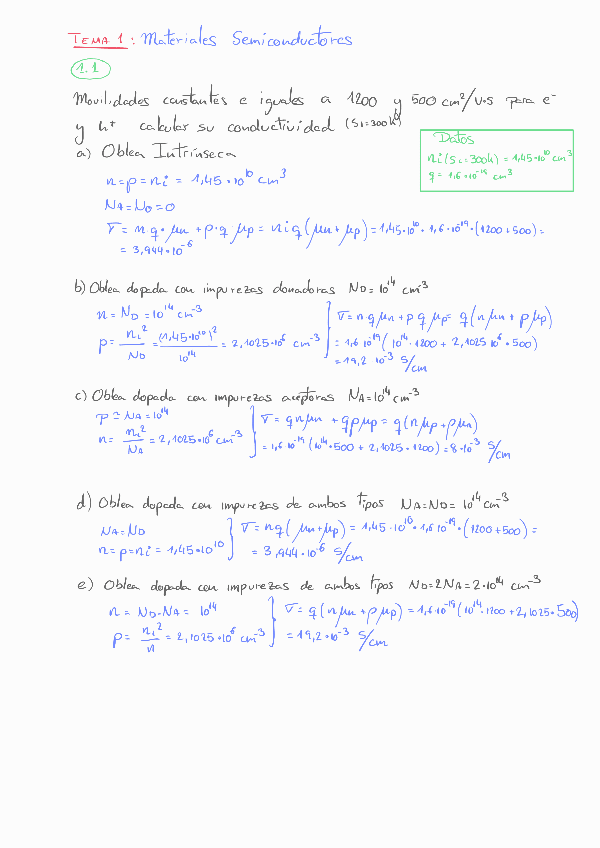 TEMA 1: Materiales Semiconductores
1.1
Movilidades constantes e iguales a 1200 y 500 cm²/V·s para e⁻
y h⁺ calcular su conductividad (Si=300k)
Datos
ni(Si=300k) = 1,45·10¹⁰ cm³
q = 1,6·10⁻¹⁹ cm
a) Oblea Intrínseca
n=p=ni = 1,45·10¹⁰ cm³
NA=ND=0
σ = n q·μn + p·q·μp = ni q(μn+μp) = 1,45·10¹⁰·1,6·10⁻¹⁹·(1200+500) =
= 3,944·10⁻⁶
b) Oblea dopada con impurezas donadoras ND=10¹⁴ cm⁻³
n = ND = 10¹⁴ cm⁻³
p = ni²/ND = (1,45·10¹⁰)²/10¹⁴ = 2,1025·10⁶ cm⁻³
σ = n q μn + p q μp = q (n μn + p μp)
= 1,6 10⁻¹⁹(10¹⁴·1200 + 2,1025 10⁶·500)
= 19,2 10⁻³ S/cm
c) Oblea dopada con impurezas aceptoras NA=10¹⁴ cm⁻³
p ≅ NA = 10¹⁴
n = ni²/NA = 2,1025·10⁶ cm⁻³
σ = q n μn + q p μp = q(n μp + p μn)
= 1,6 10⁻¹⁹ (10¹⁴·500 + 2,1025·1200) = 8·10⁻³ S/cm
d) Oblea dopada con impurezas de ambos tipos NA=ND= 10¹⁴ cm⁻³
NA=ND
n=p=ni = 1,45·10¹⁰
σ = nq( μn+μp) = 1,45·10¹⁰·1,6 10⁻¹⁹·(1200+500) =
= 3,944·10⁻⁶ S/cm
e) Oblea dopada con impurezas de ambos tipos ND=2NA=2·10¹⁴ cm⁻³
n = ND-NA = 10¹⁴
p = ni²/n = 2,1025·10⁶ cm⁻³
σ = q (n μn + p μp) = 1,6·10⁻¹⁹(10¹⁴·1200+2,1025·500)
= 19,2·10⁻³ S/cm